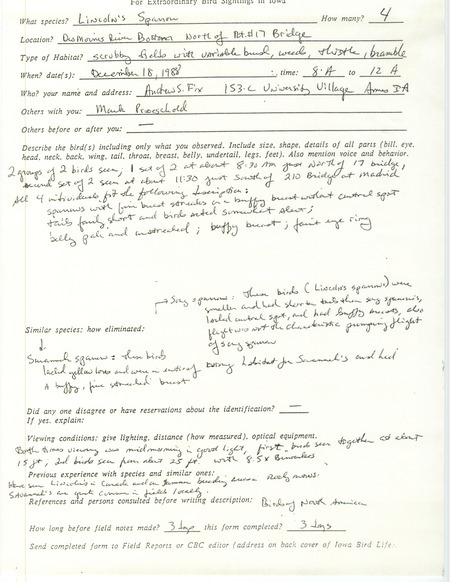 For Extraordinary Bird Sightings in Iowa
What species? Lincoln's Sparrow How many? 4
Location? Des Moines River Bottom North of Rt. #17 Bridge
Type of Habitat? scrubby fields with variable brush, weeds, thistle, bramble
When? date(s): December 18, 1988, time: 8:A to 12 A
Who? your name and address: Andrew S. Fix 153-C University Village Ames IA
Others with you: Mark Proescholdt
Others before or after you: —
Describe the bird(s) including only what you observed. Include size, shape, details of all parts (bill, eye,
head, neck, back, wing, tail, throat, breast, belly, undertail, legs, feet). Also mention voice and behavior.
2 groups of 2 birds seen; 1 set of 2 at about 8:30 AM just North of 17 bridge,
second set of 2 seen at about 11:30 just South of 210 Bridge at madrid
All 4 individuals fit the following description:
sparrows with fine breast streaks on a buffy breast without central spot
tails fairly short and birds acted somewhat alert;
belly pale and unstreaked; buffy breast; faint eye ring
→ Song sparrows: These birds (Lincoln's sparrows) were
smaller and had shorter tails than song sparrows,
lacked central spot, and had buffy breasts, also
flight was not the characteristic pumping flight
of song sparrow
Similar species: how eliminated:
↓
Savannah sparrow: these birds
lacked yellow lores and were in entirely wrong habitat for Savannah's and had
a buffy, fine streaked breast
Did any one disagree or have reservations about the identification? —
If yes. explain:
Viewing conditions: give lighting, distance (how measured), optical equipment.
Both times viewing was mid morning in good light, first birds seen together at about
15 ft, 2nd birds seen from about 25 ft. with 8.5x Binoculars
Previous experience with species and similar ones:
Have seen Lincoln's in Canada and on summer breeding areas in Rocky mtns.
Savannah's are quite common in fields locally.
References and persons consulted before writing description: Birds of North American
How long before field notes made? 3 days this form completed? 3 days
Send completed form to Field Reports or CBC editor (address on back cover of Iowa Bird Life: